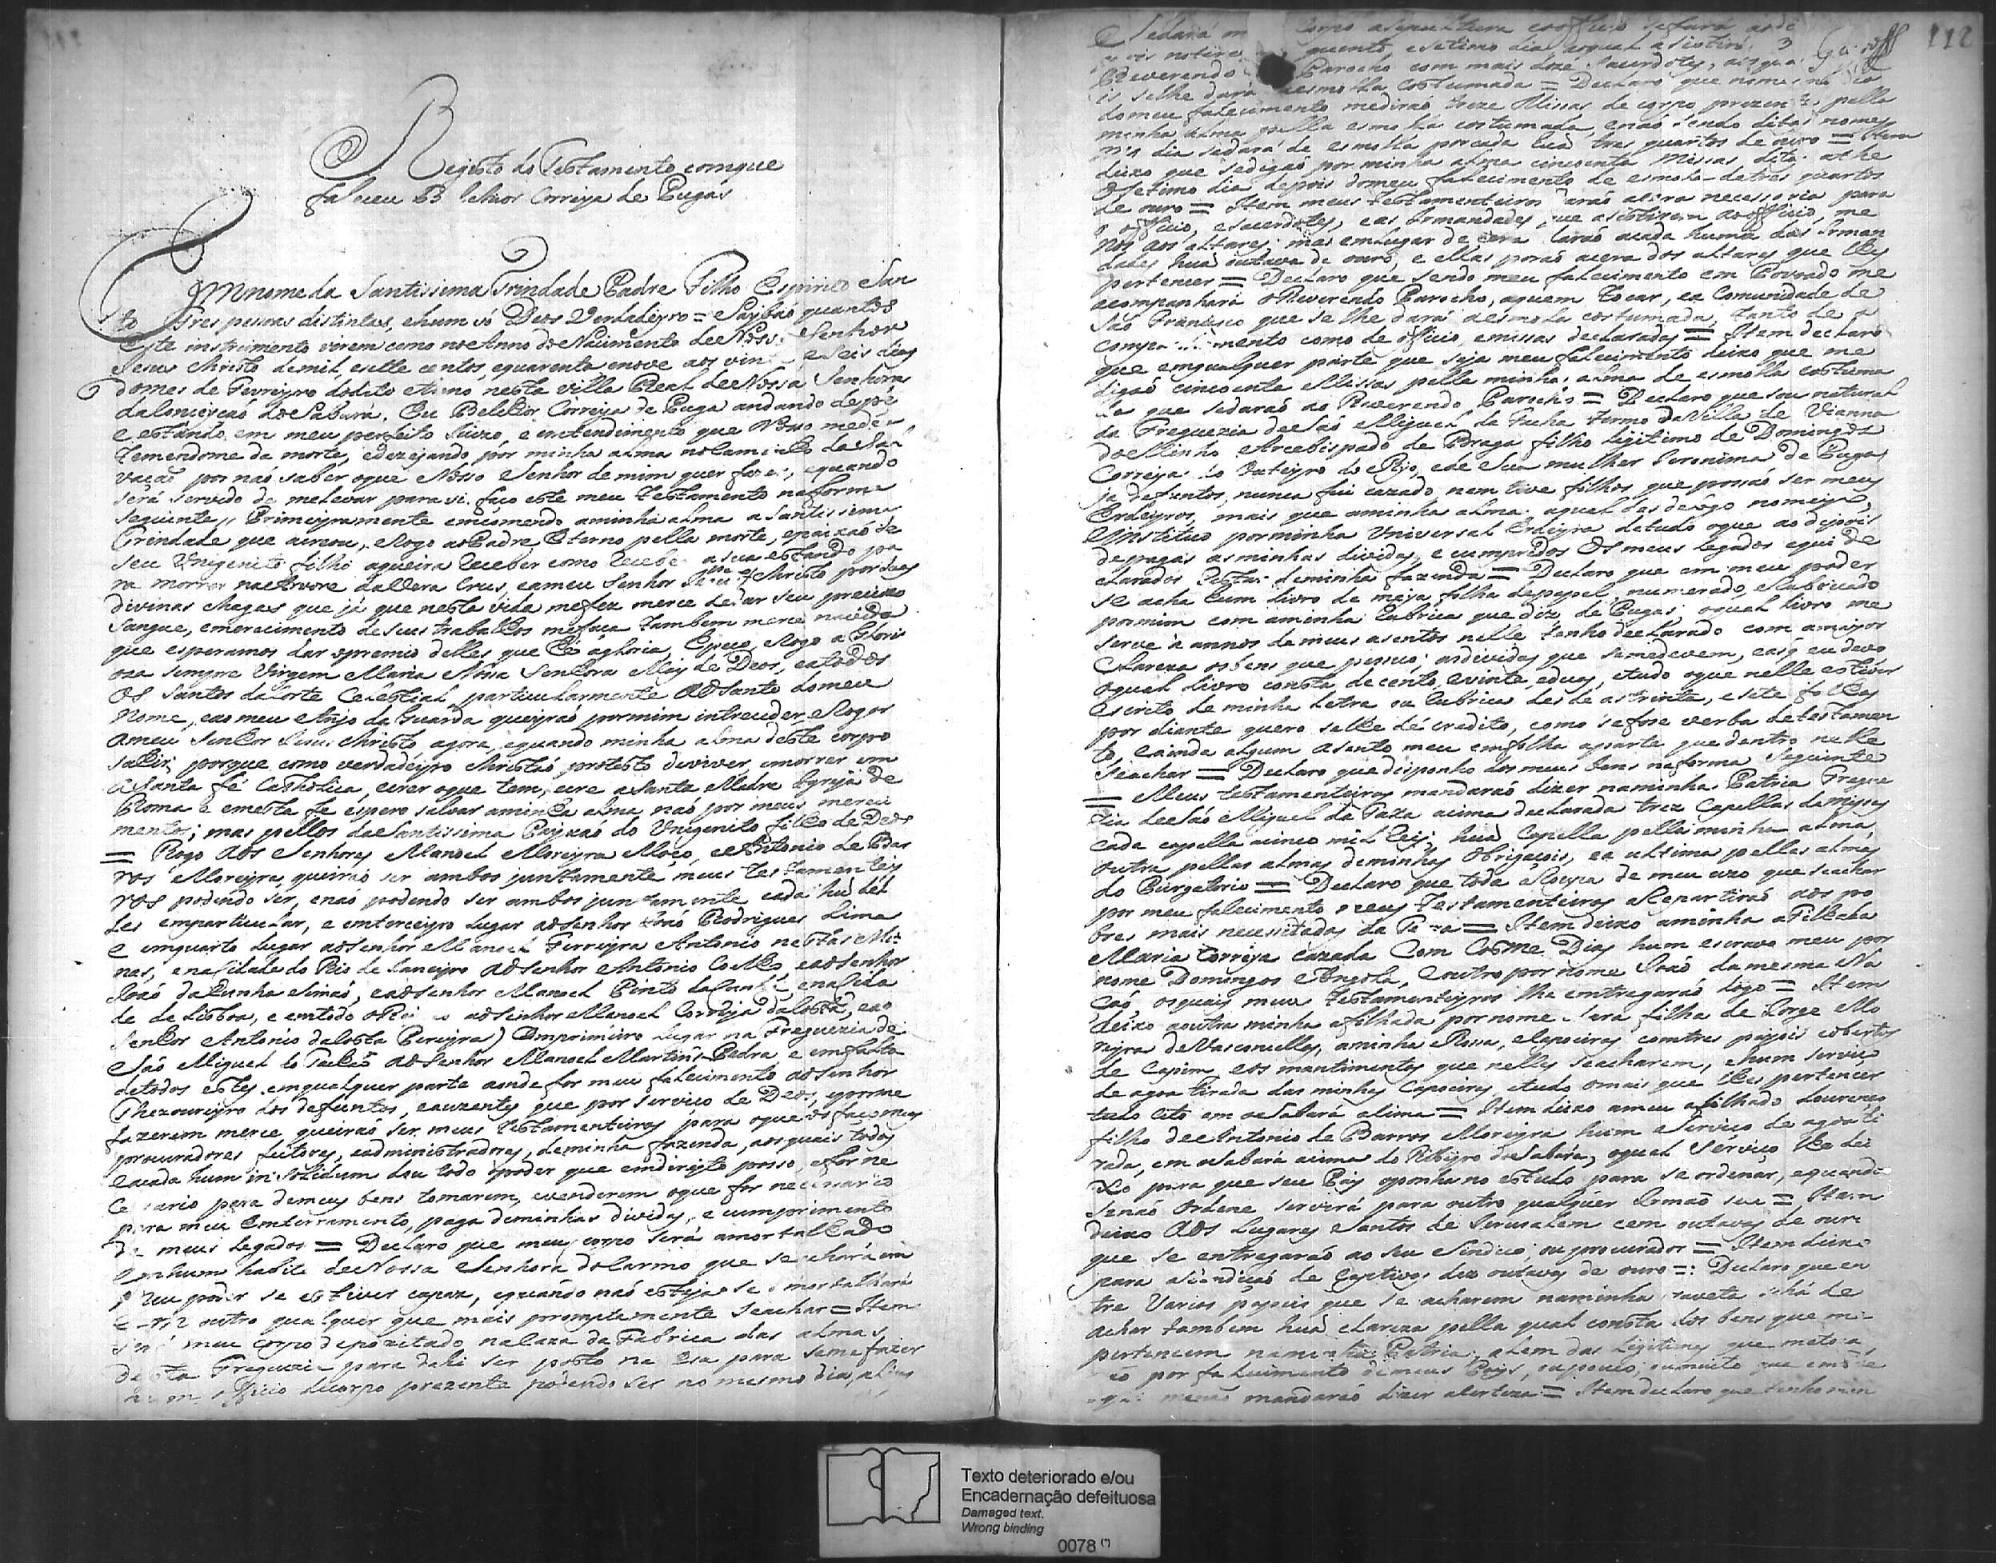 Registo do Testamento comque
faleceu Belchior Correya de Pugas
Em nome da Santissima Trindade Padre Filho Espirito San
to Tres pesoas distintas, ehum só Deos Verdadeyro = Saybaõ quantos
Este instrumento virem como no Anno do Nacimento de Nosso Senhor
Jesus Christo de mil, esette centos, equarenta enove aos vinte e Seis dias
domes de Fevreyro dodito Anno nesta villa Real de Nossa Senhora
da Conceicaõ do Sabará, Eu Belchior Correya de Puga andando de pé
e estando em meu perfeito Juizo, e entendimento que Nosso
temendome da morte, edezejando por minha alma no caminho da Sal
vaçaõ por naõ saber oque Nosso Senhor de mim quer fazer, equando
será servido de melevar para si. faço este meu Testamento naforma
Seguinte, Primeyramente emcomendo aminha alma a Santissima
Trindade que acreou, eRogo ao Padre Eterno pella morte, epaixaõ de
Seu Unigenito filho aqueira Receber como Recebeo asua estando pa
ra morrer na Arvore da Vera Crus, eameu Senhor Jesus Christo por suas
divinas chagas que já que nesta vida mefez merce de dar seu precioso
Sangue, emerecimento de seus trabalhos mefaça tambem merce navida
que esperamos dar opremio delles que hé agloria, Epeço, eRogo a Glorio
za sempre Virgem Maria Nossa Senhora May de Deos, eatodos
os Santos da Corte Celestial, particularmente ao Santo domeu
Nome, eao meu Anjo da Guarda queiraõ pormim intreceder, eRogar
ameu Senhor Jesus Christo agora, equando minha alma deste corpo
sahir; porque como verdadeyro Christaõ protesto deviver, emorrer em
a Santa fé Catholica, ecrer oque tem, ecre a Santa Madre Igreja de
Roma e emesta fe espero salvar aminha alma, naõ por meus mereci
mentos; mas pellos da Santissima Payxaõ do Unigenito filho de Deos
= Rogo aos Senhores Manoel Moreyra Moço, e Antonio de Bar
ros Moreyra, queiraõ ser ambos juntamente meus testamentey
ros podendo ser, enaõ podendo ser ambos juntamente cada hu del
les emparticular, e emterceyro lugar ao Senhor Joaõ Rodrigues Lima
e emquarto lugar ao Senhor Manoel Ferreyra Antonio nestas Mi
nas, e na Cidade do Rio de Janeyro ao Senhor Antonio Coelho, eaoSenhor
Joaõ da Cunha Simaõ, eao Senhor Manoel Pinto da Cunha, ena Cida
de de Lisboa, e emtodo o ao Senhor Manoel Correya da Costa, eao
Senhor Antonio da Costa Pereyra) Emprimeiro Lugar na Freguezia de
Saõ Miguel do ao Senhor Manoel Martins Pedra, e em falta
detodos estes, emqualquer parte aonde for meu falecimento ao Senhor
Thezoureyro dos defuntos, eauzentes que por servico de Deos, eporme
fazerem merce, queiraõ ser meus testamenteiros, para oque os faço meus
procuradores feitores, eadministradores, deminha fazenda, aosquais todos
eacada hum in solidum dou todo opoder que emdireyto posso, efor ne
cesario para demeus bens tomarem, evenderem oque for necessario
para meu emterramento, paga deminhas dividas, e cumprimento
de meus legados = Declaro que meu corpo será amortalhado
em hum habito de Nossa Senhora do Carmo que se achará em
meu poder se estiver capaz, equando naõ esteja se amortalhará
em outro qualquer que mais promptamente seachar = Item
será meu corpo depozitado na Caza da Fabrica das almas
desta Freguezia para dahi ser posto na Esa para semefazer
hum officio decorpo prezente podendo ser no mesmo dia,
112
Sedará corpo asepultura eoofficio sefará
quento, esetimo dia, aoqual asistira
Reverendo Parocho com mais doze Sacerdotes,
is selhe dará aesmolla costumada = Declaro que nomesmo dia
domeu falecimento medirão treze Missas de corpo prezente pella
minha alma pella esmolla costumada, enaõ sendo ditas nomes
mo dia sedará de esmolla porcada huã tres quartos de ouro = Item
deixo que sedigaõ porminha alma cincoenta Missas, ditas athe
Osetimo dia depois domeu falecimento de esmola detres quartos
de ouro = Item meus Testamenteiros daraõ acera necessaria para
o officio, esacerdotes, eas Irmandades, que asistirem ao officio, me
nos aos altares; mas emlugar de cera daraõ acada huma das Irman
dades huã outava de ouro, e ellas poraõ acera dos altares que lhes
pertencer = Declaro que sendo meu falecimento em Povoado me
acompanhará oReverendo Parocho, aquem tocar, ea Comunidade de
Saõ Francisco que se lhe dará aesmola costumada, tanto de a
companhamento como de officio, emissas declaradas = Item declaro
que emqualquer parte que seja meu falecimento deixo que me
digaõ cincoenta Missas pella minha alma de esmolla costuma
da que sedaraõ ao Reverendo Parocho = Declaro que sou natural
da Freguezia de Saõ Miguel da Facha termo da Villa de Vianna
do Minho Arcebispado de Braga filho legitimo de Domingos
Correya do Outeyro do Rejo, ede Sua mulher Jeronima de Pugas
ja defuntos, nunca fui cazado, nem tive filhos que possaõ ser meus
Erdeyros, mais que aminha alma, aqual desdelogo nomeyo,
einstituo porminha Universal Erdeyra detudo oque ao depois
depagas as minhas dividas, e cumpridos os meus legados equi de
clarados restar deminha fazenda = Declaro que em meu poder
se acha hum livro de meya folha depapel, numerado, eRubricado
pormim com aminha Rubrica que diz de Pugas, oqual livro me
serve à annos de meus asentos nelle tenho declarado com amayor
Clareza osbens que pessuo; asdividas que semedevem, easque eu devo
oqual livro consta decento, evinte, eduas, etudo oque nelle estiver
escrito de minha letra ou Rubrica desde as trinta, e sete folhas
por diante quero selhe dé credito, como sefose verba detestamen
to, eainda algum asento meu emfolha aparte que dentro nelle
seachar = Declaro que disponho dos meus bens naforma Seguinte
= Meus testamenteiros mandaraõ dizer naminha Patria Fregue
zia de Saõ Miguel da Faxa acima declarada trez Capellas demissas
Cada capella acinco mil Reis, huã Capella pella minha alma,
outra pellas almas deminhas obrigaçois, ea ultima pellas almas
do Purgatorio = Declaro que toda aRoupa de meu uzo que seachar
por meu falecimento meus Testamenteiros aRepartiraõ aos po
bres mais necessitados da Terra = Item deixo aminha afilhada
Maria Correya cazada Com Cosme Dias hum escravo meu por
nome Domingos Angola, eoutro por nome Joaõ, da mesma Na
çaõ, osquais meus testamenteyros lhe entregaraõ logo = Item
deixo aoutra minha afilhada por nome filha de Jorge Mo
reyra de Vasconcellos, aminha Rossa, eCapoeiras comtres payois cobertos
de capim, eos mantimentos que nelles seacharem, ehum servico
de agoa tirada das minhas Capoeiras, etudo omais que lhes pertencer
tudo cito em o Sabará acima = Item deixo ameu afilhado Lourenço
filho de Antonio de Barros Moreyra hum Serviço de agoa ti
rada, em o Sabará acima do Ribeyro do Sabará, oqual Serviço lhe dei
xo para que seu Pay oponha no estudo para se ordenar, equando
senaõ Ordene servirá para outro qualquer Irmaõ seu = Item
deixo aos Lugares Santos de Jerusalem cem outavas de ouro
que se entregaraõ ao seu Sindico, ou procurador = Item deixo
para aRendiçaõ de Captivos dez outavas de ouro = Declaro que en
tre Varios papeis que se acharem naminha gaveta sehá de
achar tambem huã clareza pella qual consta dos bens que me
pertencem naminha Patria, alem das Legitimas que metoca
raõ por falecimento demeus Pays, oupouco, oumuito que
mandaraõ dizer acerteza = Item declaro que tenho
Texto deteriorado e/ou
Encadernação defeituosa
Damaged text.
Wrong binding
0078 (*)